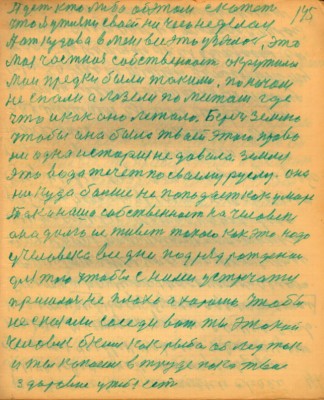 145
А дет кто либо об том скажет
что мужики свай ни чего не делал
Мат кудова в мене все это увлнлос, это
моя частная собственност окружила
Маи предки были такими, по ночам
не спали а лазели по местам где
что и как оно лежало. Бери землю
чтобы она была твоей этого право
ни одна история не давала. Земля
это вода течет по своему руслу. она
ни куда болше не попадает как у маре
Така наша собственност на человек
она долго не живет такого как это надо
у человека все дни под ряд рождении
для того чтобы с ними устречати
пришлос не плохо а хорошо. Чтобы
не сказали соседи вот ты этакой
человек бйиш как рыба об лед так
и ты копаеш в труде пока твае
здоровие унесет